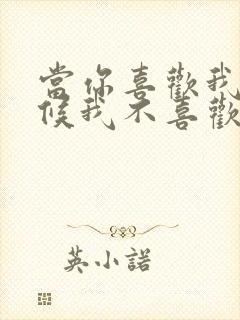 當你喜歡我
候我不喜歡
英小諾